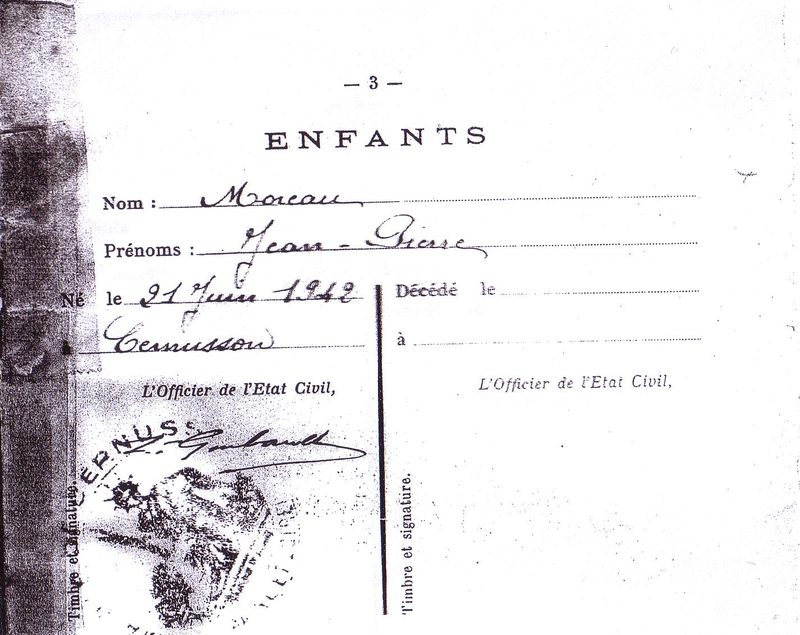 — 3 —
ENFANTS
Nom : Moreau
Prénoms : Jean - Pierre
Né le 21 Juin 1942
à Cernusson
L'Officier de l'Etat Civil,
CERNUSS
Timbre et signature.
Décédé le
à
L'Officier de l'Etat Civil,
Timbre et signature.